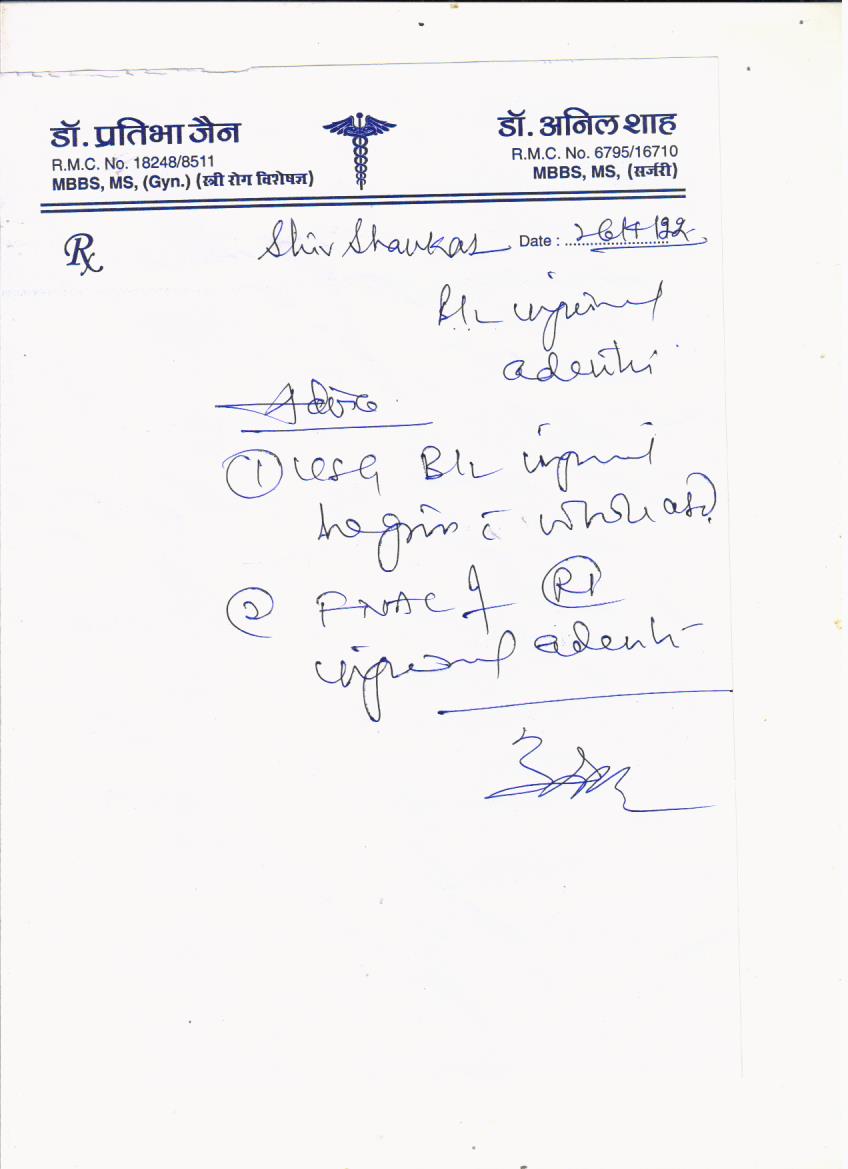 डॉ. प्रतिभा जैन
R.M.C. No. 18248/8511
MBBS, MS, (Gyn.) (स्त्री रोग विशेषज्ञ)
डॉ. अनिल शाह
R.M.C. No. 6795/16710
MBBS, MS, (सर्जरी)
Rx
Shiv Shankar Date :
B/L inguinal
adeniti
Advice
① USG B/L inguinal
region c whole abd.
② FNAC of Rt
inguinal adeniti